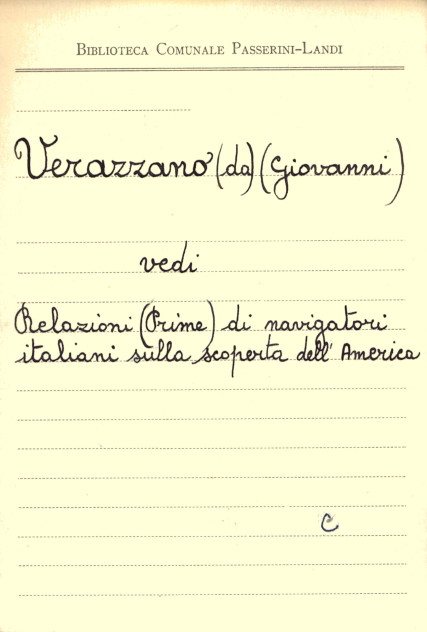 Biblioteca Comunale Passerini-Landi
Verazzano (da) (Giovanni)
vedi
Relazioni (Prime) di navigatori
italiani sulla scoperta dell'America
C